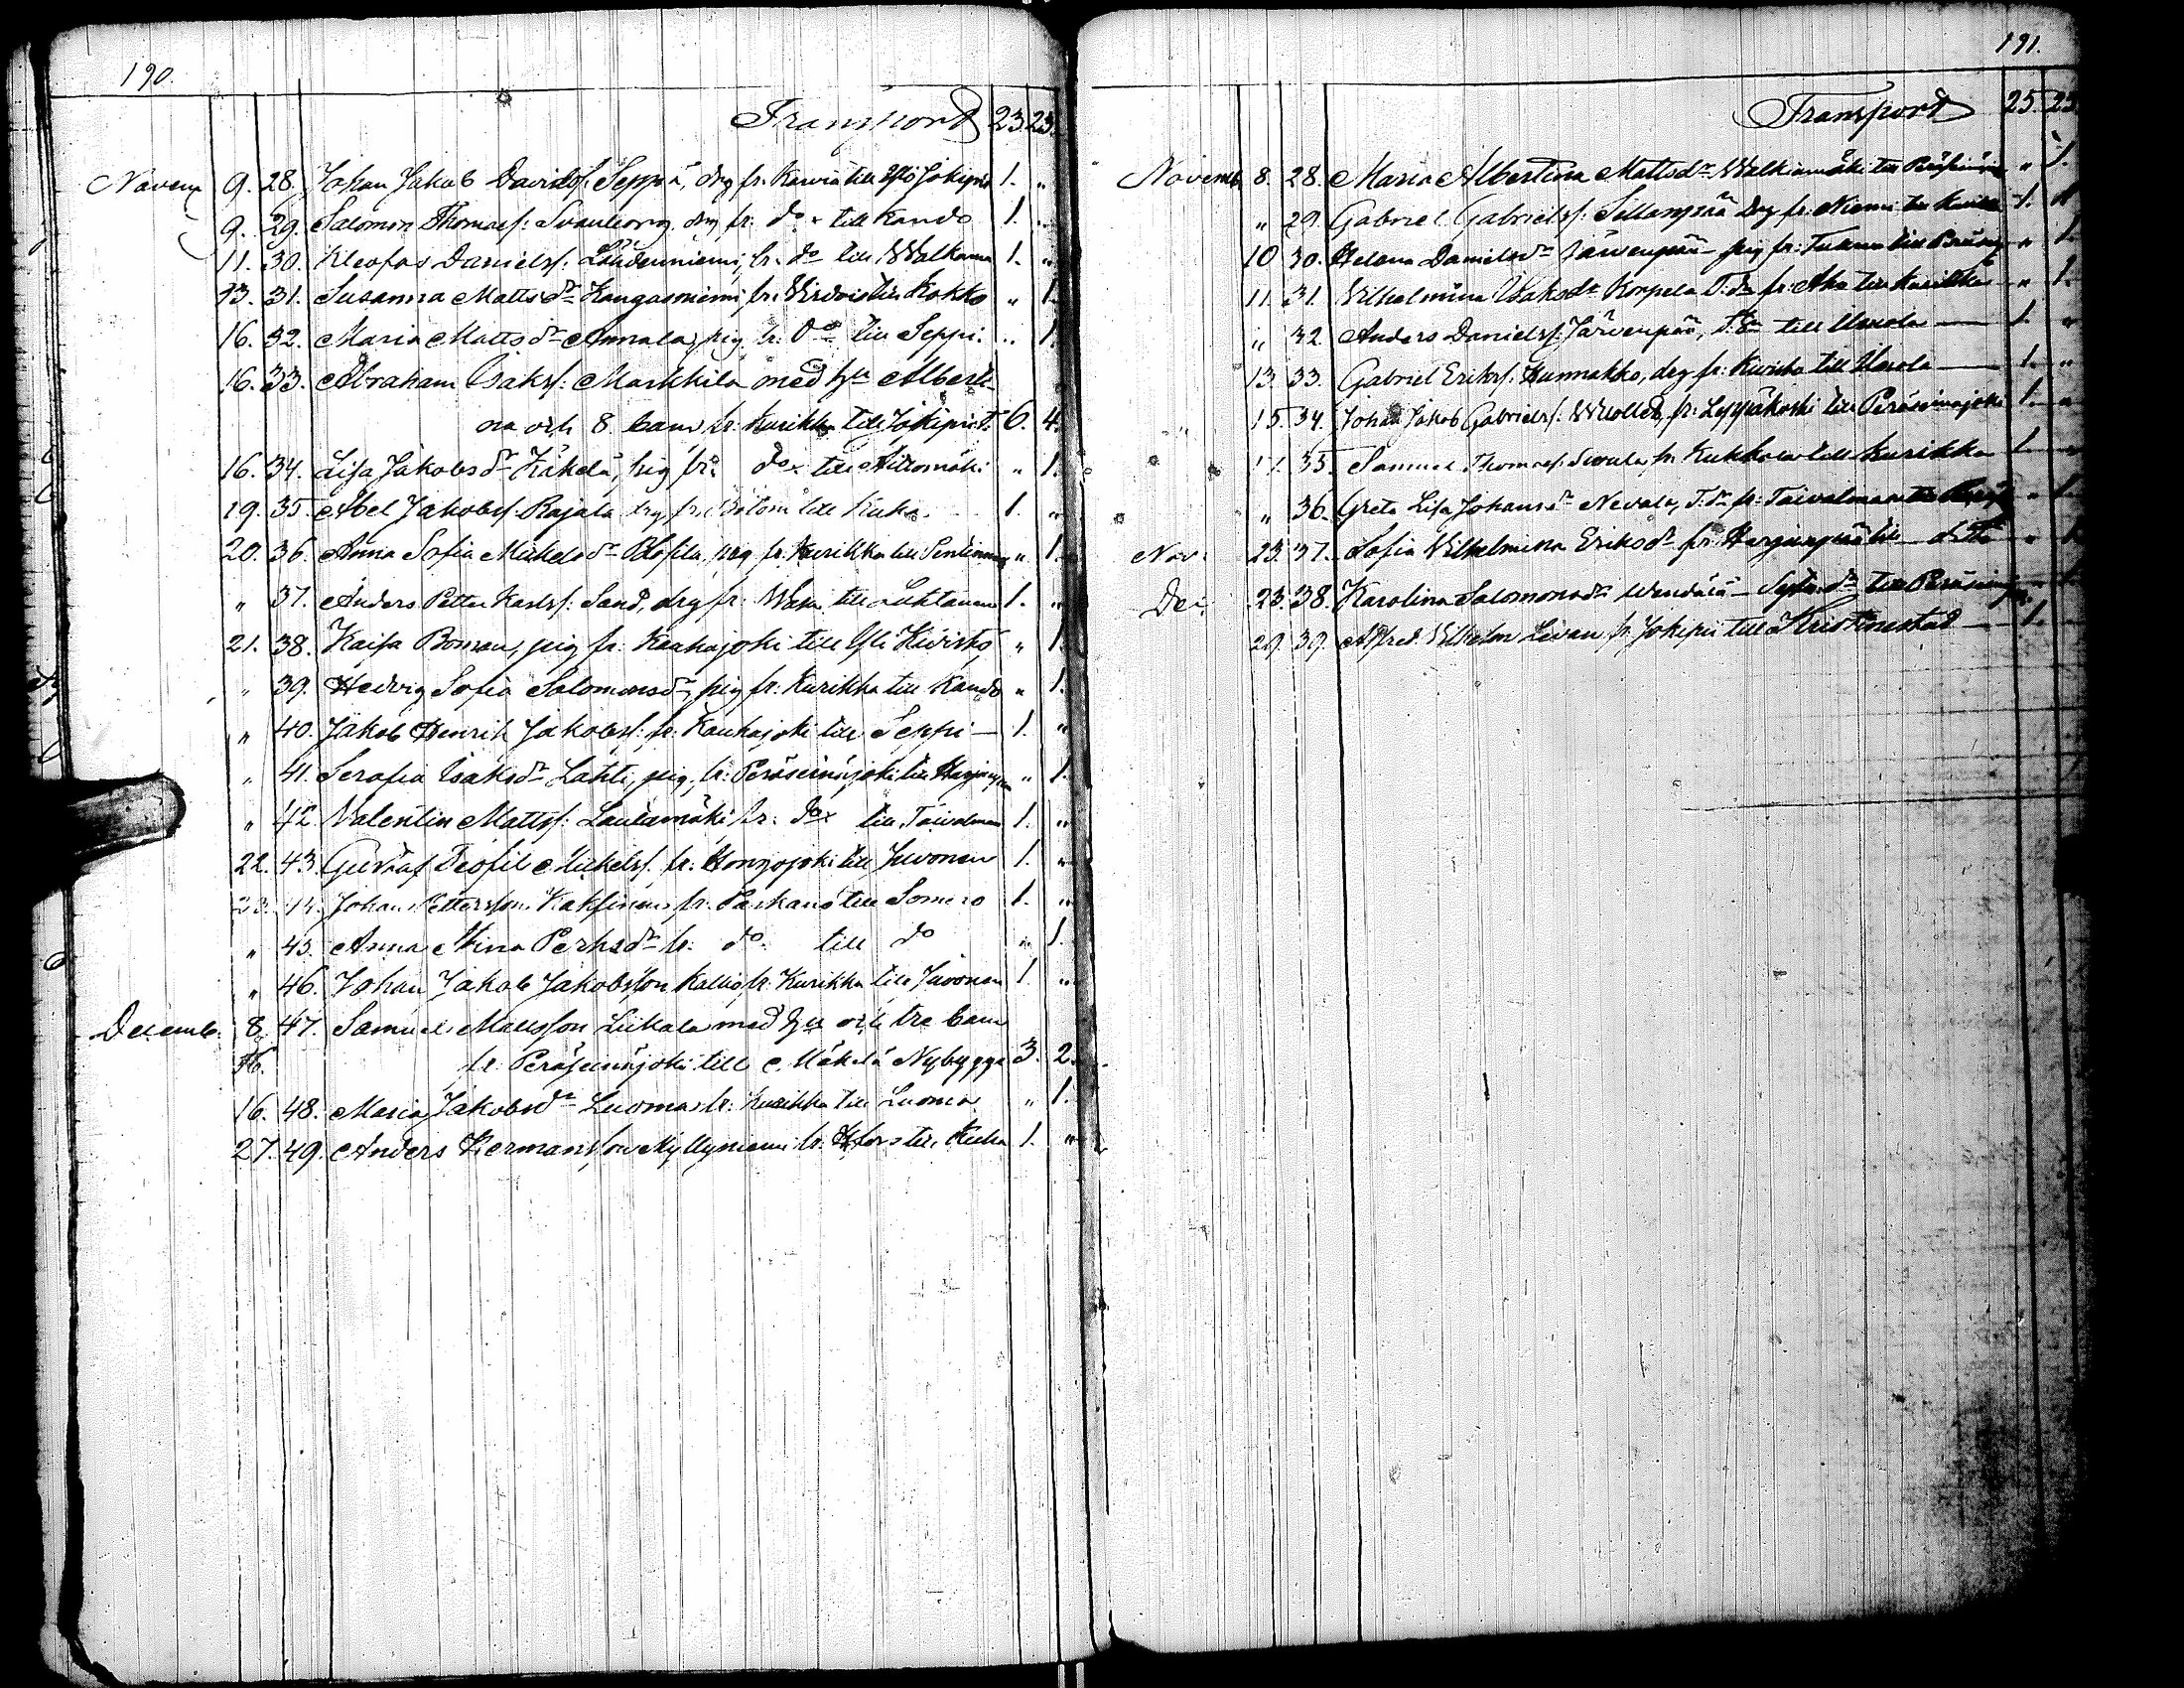 190.
Transport 23. 23.
Novem 9. 28. Johan Jakob Davidsf. Seppä, drg fr. Karvia till Yfö Jokipii 1. „
9. 29. Salomon Thomasf. Svanberg, drg fr. do till Kando 1. „
11. 30. Kleofas Danielsf. Löüdenniemi, fr. do till Walkama 1. „
13. 31. Susanna Mattsdr Kangasniemi, fr. Virdois till Kokko „ 1.
16. 32. Maria Mattsdr Annala, pig fr. do till Seppi. „ 1.
16. 33. Abraham Isaksf. Markkila med hu Alberti-
na och 8 barn fr. Kurikka till Jokipii 6. 4.
16. 34. Lisa Jakobsdr Käkelä, pig fr. do till Aittomäki „ 1.
19. 35. Abel Jakobsf. Rajala drg fr. till Kuha. 1. „
20. 36. Anna Sofia Mickelsdr pig fr. Kurikka till „ 1.
„ 37. Anders Petter Karlsf. Sand, drg fr. Wasa till Luhtanen 1. „
21. 38. Kaisa Boman, pig fr. Kauhajoki till Yli Kivistö „ 1.
„ 39. Hedvig Sofia Salomonsdr, pig fr. Kurikka till Kando „ 1.
„ 40. Jakob Henrik Jakobsf. fr. Kauhajoki till Seppi — 1. „
„ 41. Serafia Isaksdr Lahti, pig, fr. Peräseinäjoki till „ 1.
„ 42. Valentin Mattsf. Lautamäki fr. do till Taivalmaa 1. „
22. 43. Gustaf Teofil Mickelsf. fr. Honzojoki till Juvonen 1. „
23. 44. Johan Pettersson fr. Parkano till Somero 1. „
„ 45. Anna Stina Perhsdr fr. do till do „ 1.
„ 46. Johan Jakob Jakobsson Kallio fr. Kurikka till Juvonen 1. „
Decemb. 8. 47. Samuel Mattsson Lukala med hu och tre barn
16. fr. Peräseinäjoki till Mäkelä Nybygge 3. 2.
16. 48. Maria Jakobsdr Luoma fr. Kurikka till Luoma „ 1.
27. 49. Anders Hermansson Myllyniemi fr. Hfors till Kuha 1. „
191.
Transport 25. 25.
Novemb. 8. 28. Maria Albertina Mattsdr Walkiamäki till „ 1.
„ 29. Gabriel Gabrielsf. Sillanpää drg fr. Niemi till 1. „
10 30. Helena Danielsdr Järvenpää pig fr. till „ 1.
11. 31. Vilhelmina Isaksdr Korpela T.dr fr. Aho till Kurikka „ 1.
„ 32. Anders Danielsf. Järvenpää, till — 1. „
13. 33. Gabriel Eriksf. Hunnakko, drg fr. till — 1. „
15. 34. Johan Jakob Gabrielsf. fr. Leppäkoski till Peräseinäjoki 1. „
17. 35. Samuel Thomasf. fr. Kukkola till Kurikka 1. „
„ 36. Greta Lisa Johansdr Nevala, T.dr fr. Taivalmaa till „ 1.
Nov. 23. 37. Sofia Vilhelmina Eriksdr fr. till ditto „ 1.
De. 23. 38. Karolina Salomonsdr till „ 1.
29. 39. Alfred Vilhelm Levan fr. Jokipii till Kristinestad — 1.